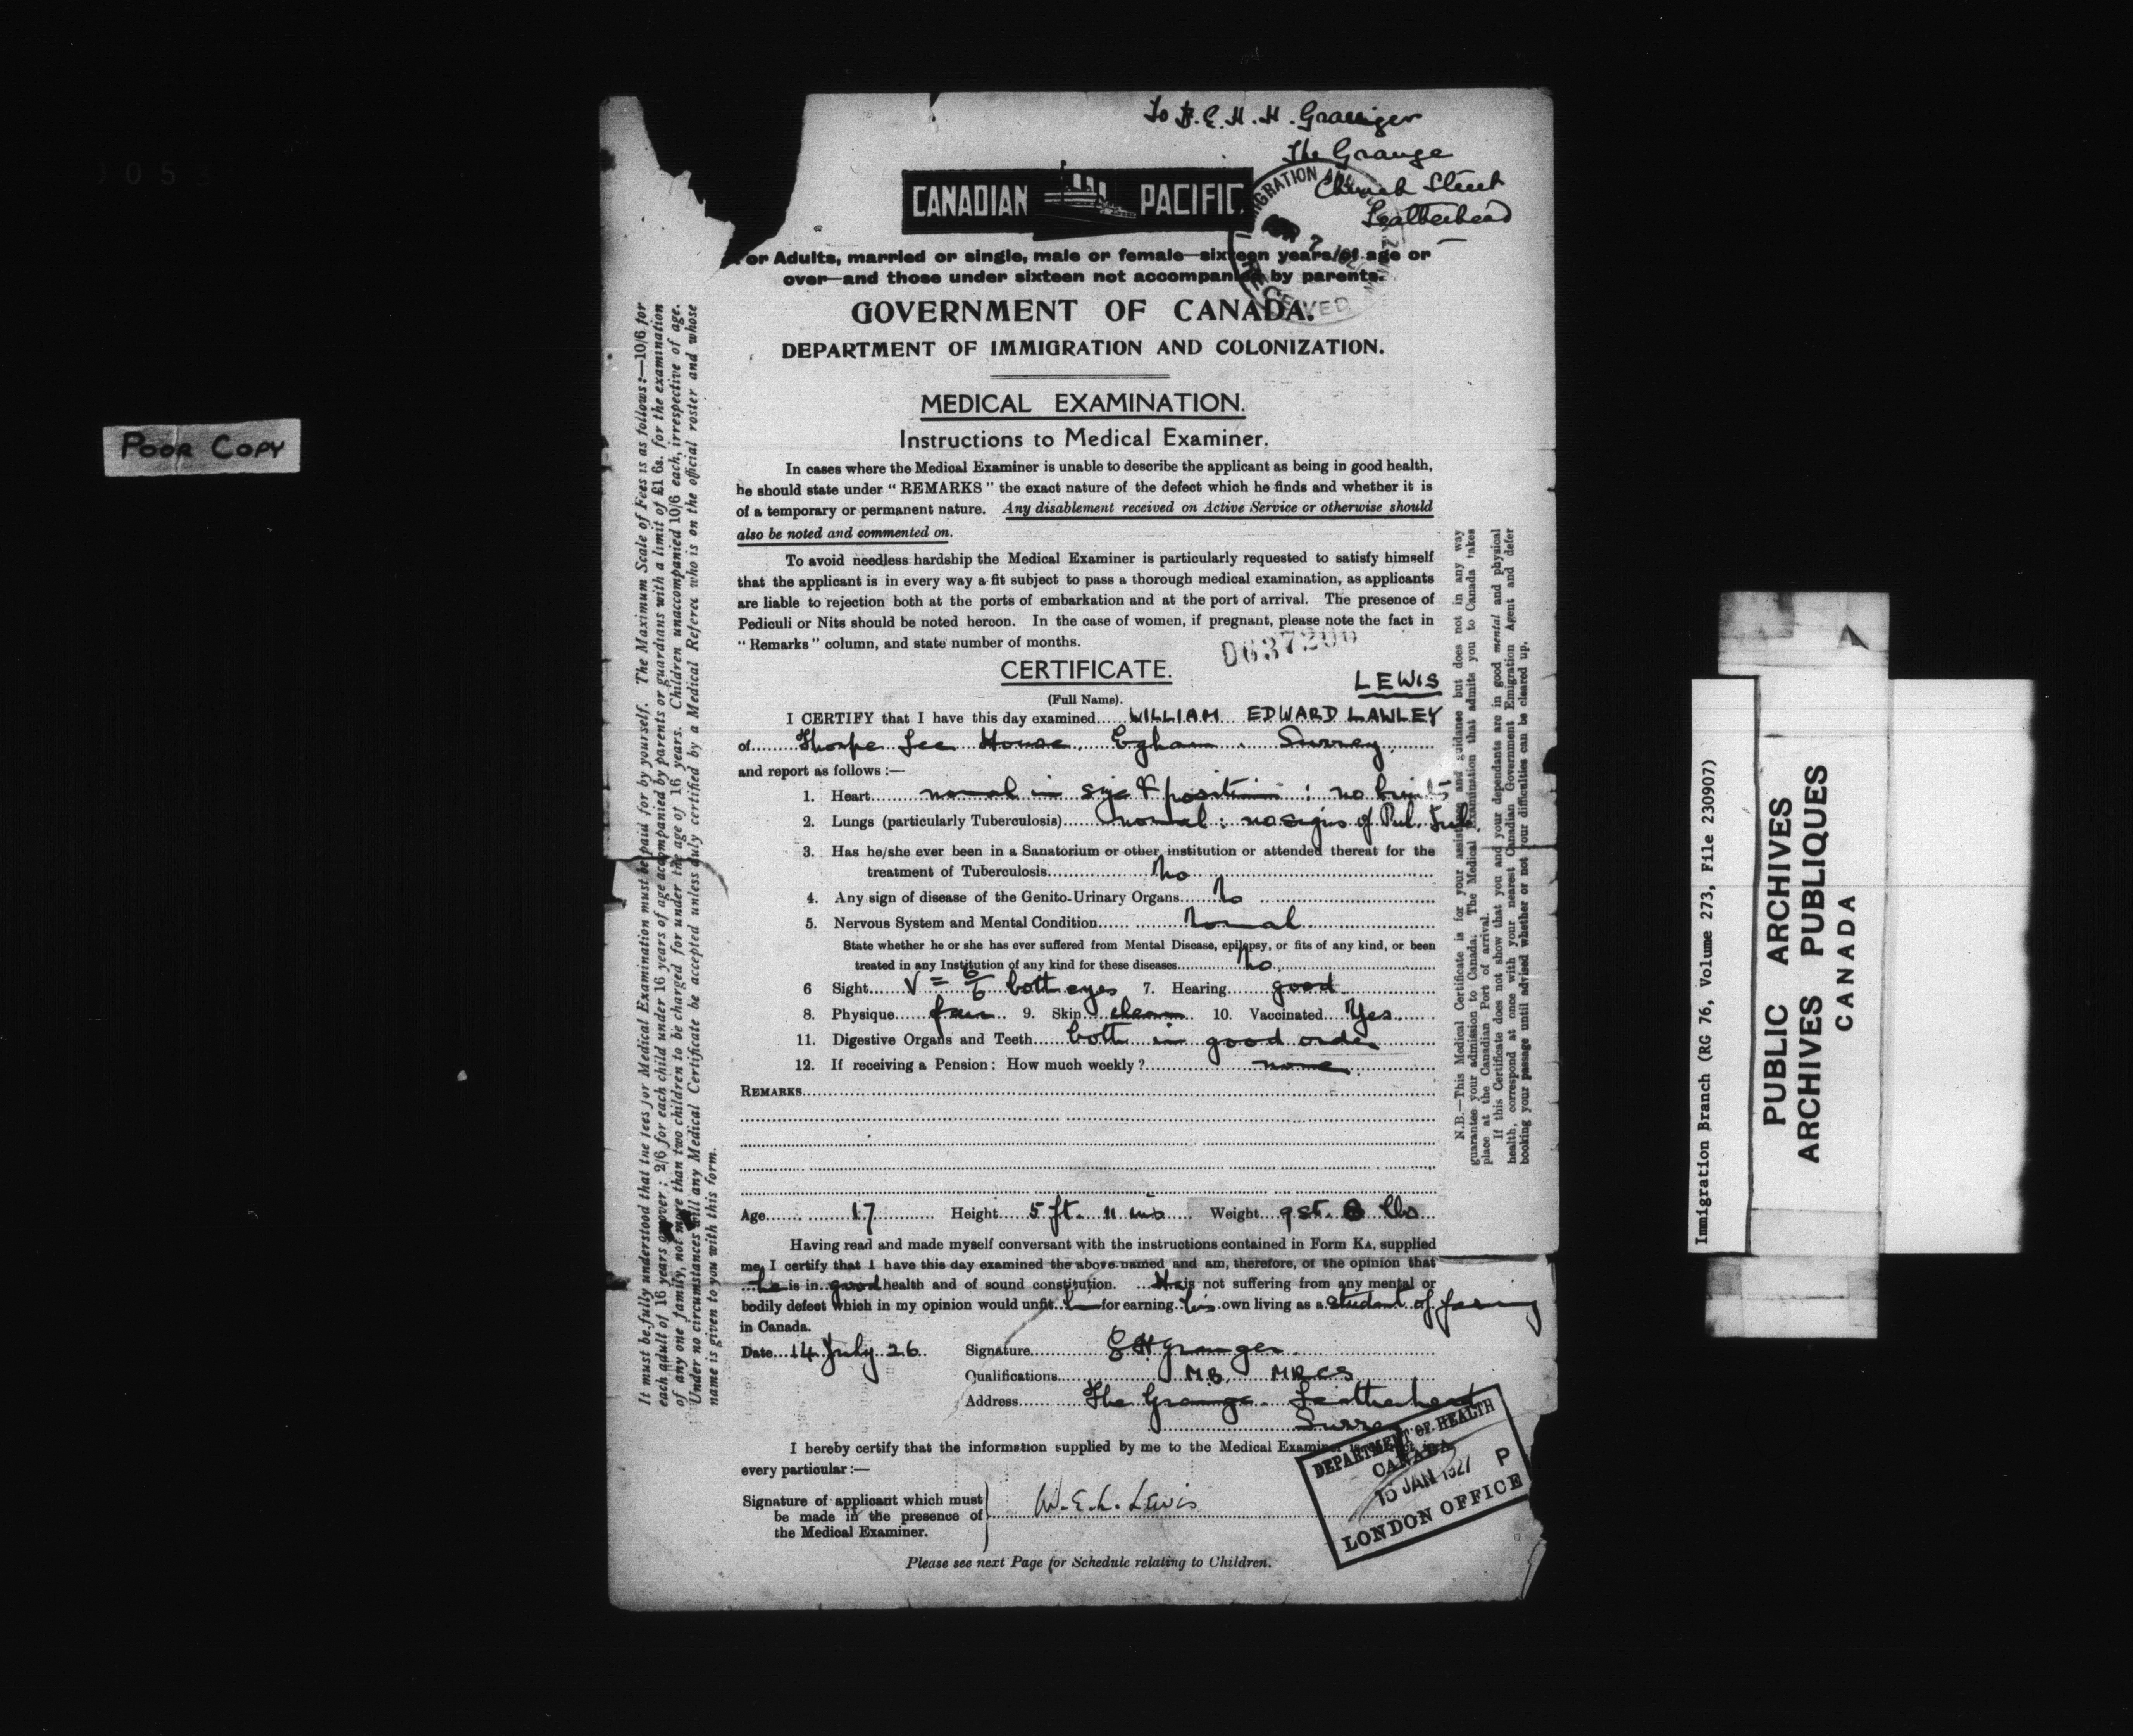 POOR COPY
To B. E. H. H. Granger
The Grange
Church Street
Leatherhead
CANADIAN PACIFIC
RECEIVED
or Adults, married or single, male or female—sixteen years of age or
over—and those under sixteen not accompanied by parents.
GOVERNMENT OF CANADA.
DEPARTMENT OF IMMIGRATION AND COLONIZATION.
MEDICAL EXAMINATION.
Instructions to Medical Examiner.
In cases where the Medical Examiner is unable to describe the applicant as being in good health,
he should state under "REMARKS" the exact nature of the defect which he finds and whether it is
of a temporary or permanent nature. Any disablement received on Active Service or otherwise should
also be noted and commented on.
To avoid needless hardship the Medical Examiner is particularly requested to satisfy himself
that the applicant is in every way a fit subject to pass a thorough medical examination, as applicants
are liable to rejection both at the ports of embarkation and at the port of arrival. The presence of
Pediculi or Nits should be noted hereon. In the case of women, if pregnant, please note the fact in
"Remarks" column, and state number of months.
CERTIFICATE.
LEWIS
(Full Name).
I CERTIFY that I have this day examined WILLIAM EDWARD LAWLEY
of Thorpe Lee House, Egham, Surrey.
and report as follows :—
1. Heart normal in size & position : no bruits
2. Lungs (particularly Tuberculosis) normal : no signs of Pul. Tub.
3. Has he/she ever been in a Sanatorium or other institution or attended thereat for the
treatment of Tuberculosis No
4. Any sign of disease of the Genito-Urinary Organs No
5. Nervous System and Mental Condition Normal
State whether he or she has ever suffered from Mental Disease, epilepsy, or fits of any kind, or been
treated in any Institution of any kind for these diseases No
6 Sight V = 6/6 both eyes 7. Hearing good
8. Physique fair 9. Skin clean 10. Vaccinated Yes
11. Digestive Organs and Teeth both in good order
12. If receiving a Pension: How much weekly? none
REMARKS
Age 17 Height 5 ft. 11 ins Weight 9 st. 8 lbs
Having read and made myself conversant with the instructions contained in Form KA, supplied
me, I certify that I have this day examined the above-named and am, therefore, of the opinion that
he is in good health and of sound constitution. He is not suffering from any mental or
bodily defect which in my opinion would unfit him for earning his own living as a student of farming
in Canada.
Date 14 July 26 Signature E H Granger
Qualifications M.B. MRCS
Address The Grange. Leatherhead
Surrey
I hereby certify that the information supplied by me to the Medical Examiner is correct in
every particular :—
Signature of applicant which must
be made in the presence of
the Medical Examiner.
W. E. L. Lewis
DEPARTMENT OF HEALTH
CANADA
15 JAN 1927 P
LONDON OFFICE
Please see next Page for Schedule relating to Children.
It must be fully understood that the fees for Medical Examination must be paid for by yourself. The Maximum Scale of Fees is as follows:—10/6 for
each adult of 16 years or over; 2/6 for each child under 16 years of age accompanied by parents or guardians with a limit of £1 6s. for the examination
of any one family, not more than two children to be charged for under the age of 16 years. Children unaccompanied 10/6 each, irrespective of age.
Under no circumstances will any Medical Certificate be accepted unless duly certified by a Medical Referee who is on the official roster and whose
name is given to you with this form.
N.B.—This Medical Certificate is for your assistance and guidance but does not in any way
guarantee your admission to Canada. The Medical Examination that admits you to Canada takes
place at the Canadian Port of arrival.
If this Certificate does not show that you and your dependants are in good mental and physical
health, correspond at once with your nearest Canadian Government Emigration Agent and defer
booking your passage until advised whether or not your difficulties can be cleared up.
Immigration Branch (RG 76, Volume 273, File 230907)
PUBLIC ARCHIVES
ARCHIVES PUBLIQUES
CANADA